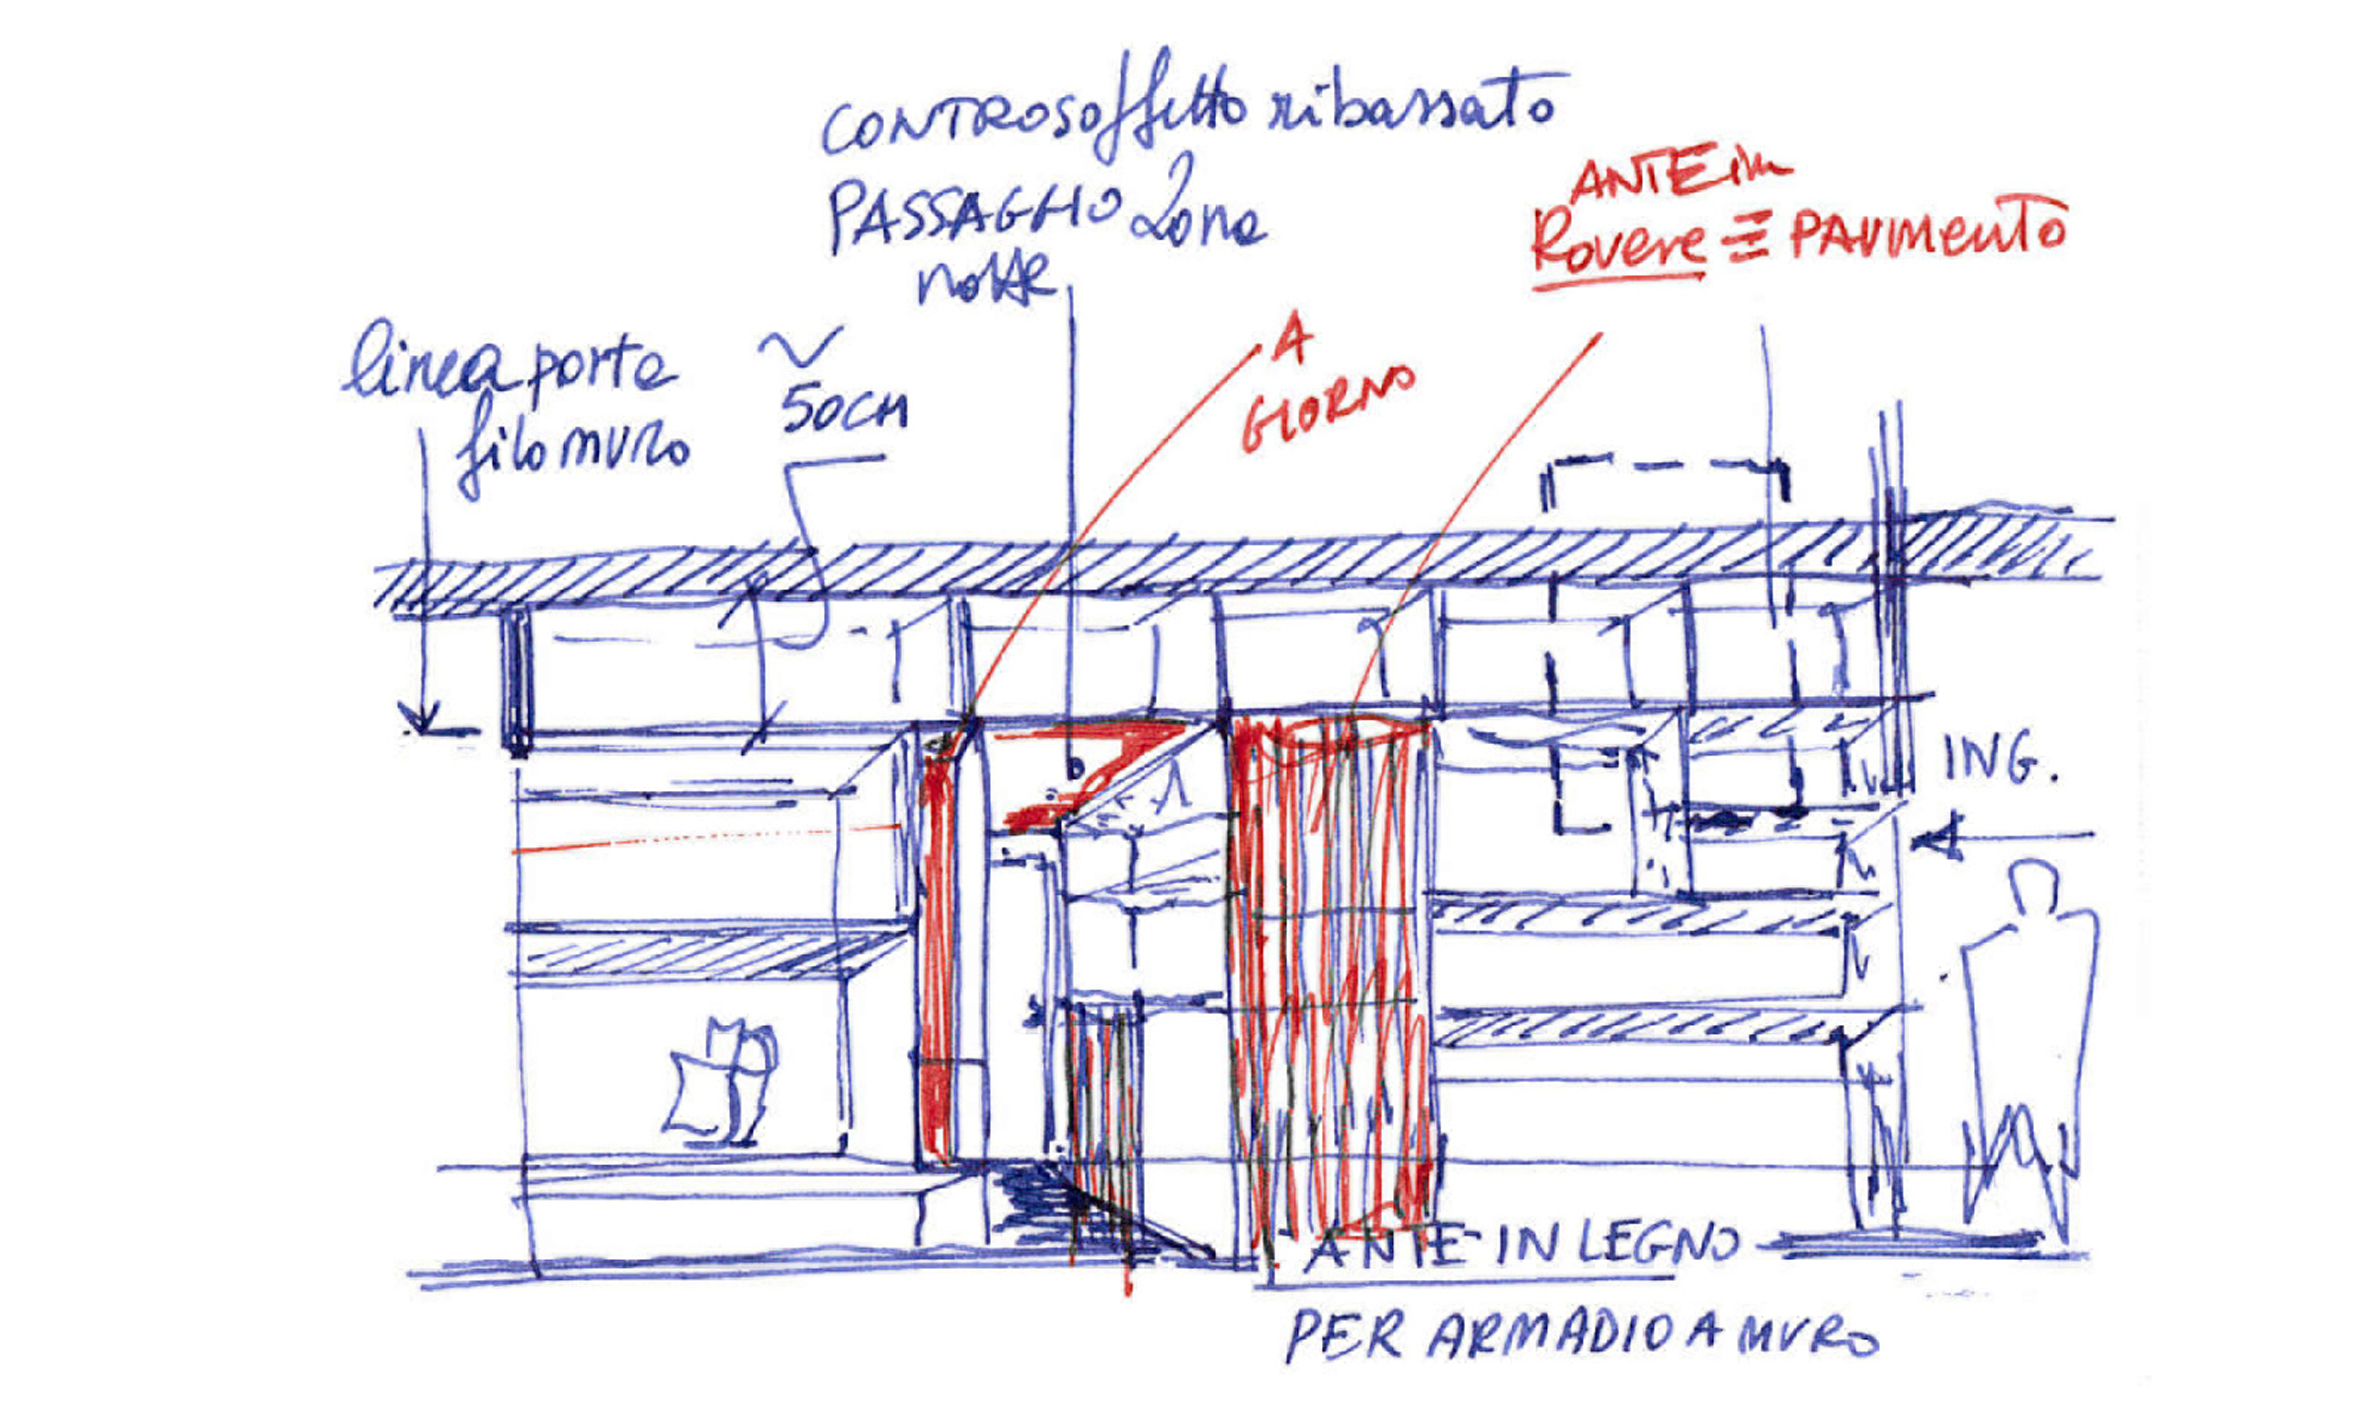 CONTROSOffitto ribassato
PASSAGGIO zona
notte
ANTE in
Rovere ≡ PAVIMENTO
linea porte
filo MURO
~
50CM
A
GIORNO
ING.
ANTE IN LEGNO
PER ARMADIO A MURO